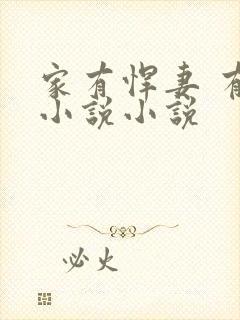 家有悍妻 有
小说小说
必火